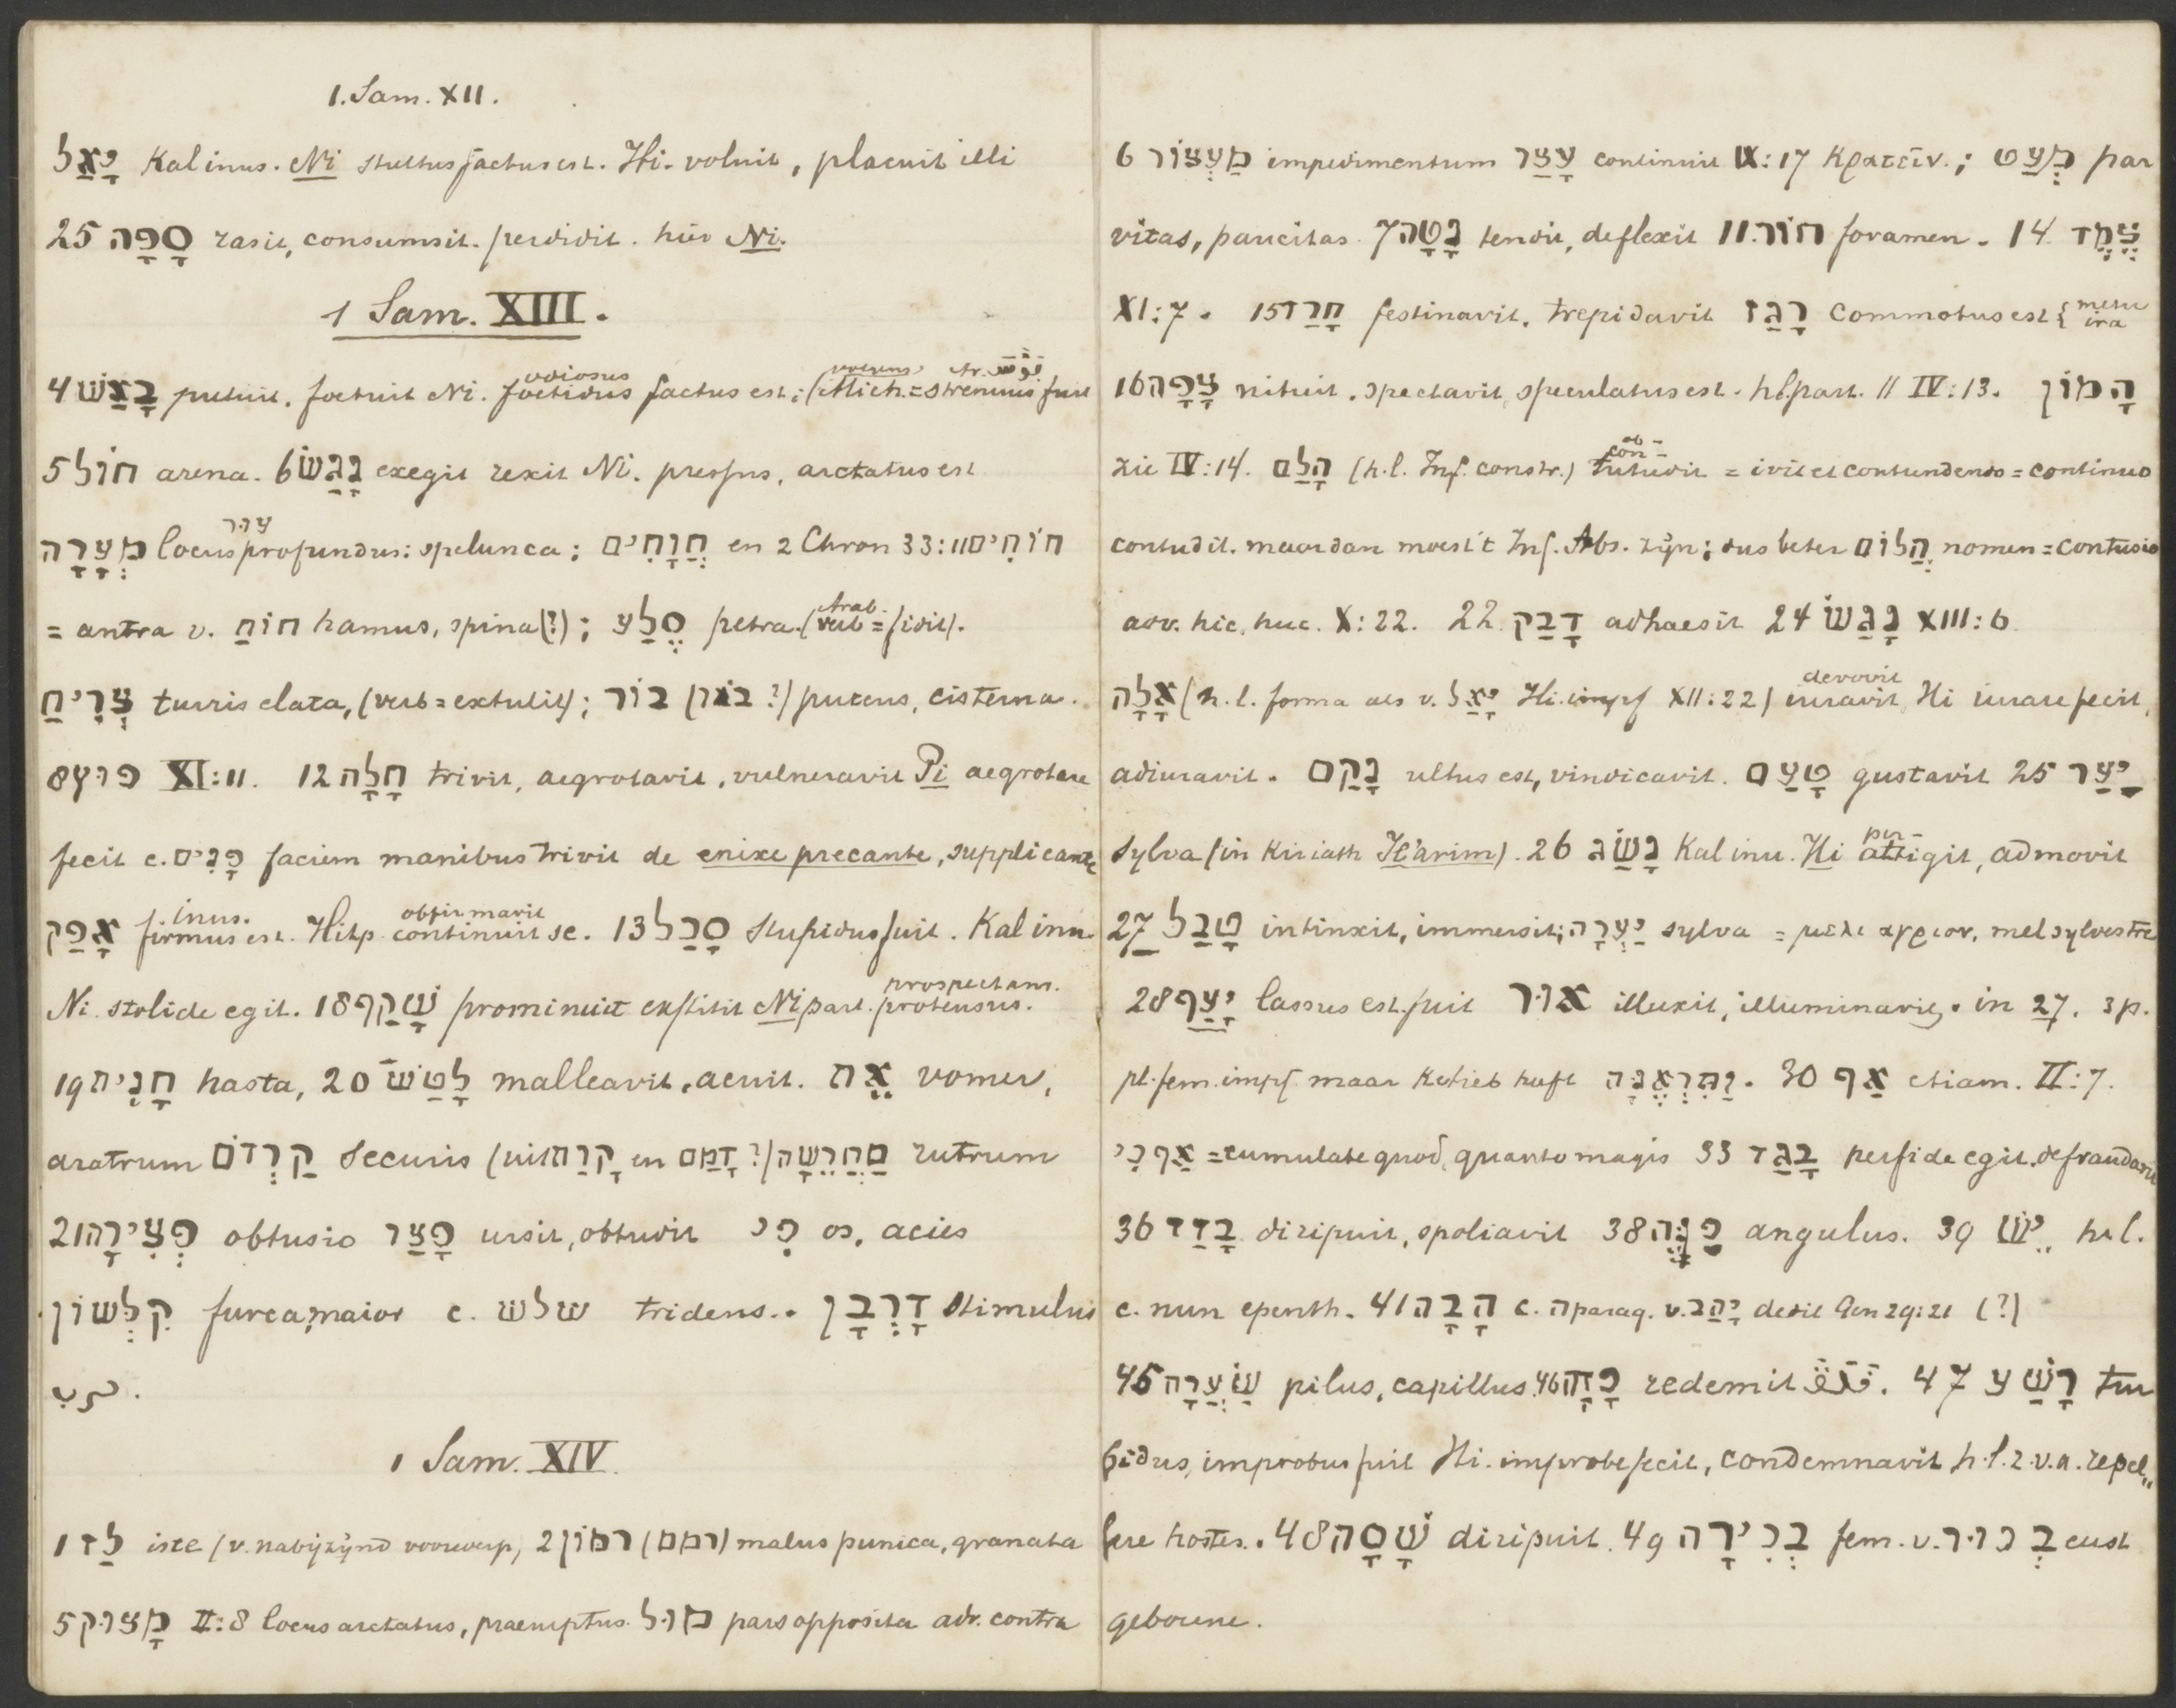 1. Sam. XII.
יָאַל Kal inus. Ni stultus factus est. Hi. voluit, placuit illi
25 סָפָה rasit, consumsit. perdidit. hic Ni.
1 Sam. XIII.
4 בָאַשׁ putuit. foetuit Ni. foetidus odiosus factus est; (Mich. = strenuus fuit
5 חוֹל arena. 6 נָגַשׂ exegit rexit Ni. pressus, arctatus est
מְעָרָה עור locus profundus: spelunca; חֲוָחִים en 2 Chron 33:11 חוֹחִים
= antra v. חוֹחַ hamus, spina (?); סֶלַע petra. (Arab. verb = fidit).
צְרִיחַ turris elata, (verb = extulit); בוֹר (בּאר ?) puteus, cisterna.
8 פוץ XI:11. 12 חָלָה trivit, aegrotavit, vulneravit Pi aegrotare
fecit c. פָנִים faciem manibus trivit de enixe precante, supplicante
אָפַק inus. firmus est. Hitp. obfirmavit continuit se. 13 סָכַל stupidus fuit. Kal inu.
Ni. stolide egit. 18 שָׁקַף prominuit exstitit Ni part. prospectans. protensus.
19 חָנִית hasta, 20 לָטַשׁ malleavit, acuit. אֵת vomer,
aratrum קַרְדֹם securis (uit קָרַח en דָמַם ?) מַחֲרֵשָׁה rutrum
21 פְּצִירָה obtusio פָּצַר ursit, obtudit פִי os, acies
קִלְּשׁוֹן furca, maior c. שלש tridens. דָרְבָן stimulus
1 Sam. XIV.
1 לַז iste (v. nabijzijnd voorwerp) 2 רמוֹן (רמם) malus punica, granata
5 מָצוּק II:8 locus arctatus, praeruptus. מוּל pars opposita adv. contra
6 מַעְצוֹר impedimentum עָצַר continuit IX:17 κρατεῖν.; מְעַט par
vitas, paucitas. 7 נָטָה tendit, deflexit 11. חוֹר foramen. 14. צֶמֶד
XI:7. 15 חָרַד festinavit. trepidavit רָגַז commotus est { metu ira
16 צָפָה nituit. spectavit, speculatus est. hl. part. // IV:13. הָמוֹן
zie IV:14. הָלַם (h.l. Inf. constr.) ob- con- tutudit = ivit et contundendo = continuo
contudit. maar dan moest 't Inf. Abs. zijn; dus beter הֲלוֹם nomen = contusio
adv. hic, huc. X:22. 22 דָבַק adhaesit 24 נָגַשׂ XIII:6.
אָלָה (h.l. forma als v. יָאַל Hi. impf XII:22) devovit iuravit, Hi iurare fecit,
adiuravit. נָקַם ultus est, vindicavit. טָעַם gustavit 25 יַעַר
sylva (in Kiriath Je'arim). 26 נָשַׂג Kal inu. Hi per- attigit, admovit
27 טָבַל intinxit, immersit; יַעְרָה sylva = μελι αγριον, mel sylvestre
28 יָעַף lassus est. fuit אור illuxit, illuminavit. in 27. 3 p.
pl. fem. impf maar Ketieb heeft וַתִּרְאֶנָה. 30 אַף etiam. II:7.
אַף כִי = cumulate quod, quanto magis 33 בָגַד perfide egit, defraudavit
36 בָזַז diripuit, spoliavit 38 פִנָּה angulus. 39 יֵשׁ h.l.
c. nun epenth. 41 הָבָה c. ה parag. v. יָהַב dedit Gen 29:21 (?)
45 שַׂעֲרָה pilus, capillus. 46 פָדָה redemit. 47 רָשַׁע tur
bidus, improbus fuit Hi. improbe fecit, condemnavit h.l. z.v.a. repel„
lere hostes. 48 שָׁסָה diripuit. 49 בְכִירָה fem. v. בְכוּר eerst
geborene.